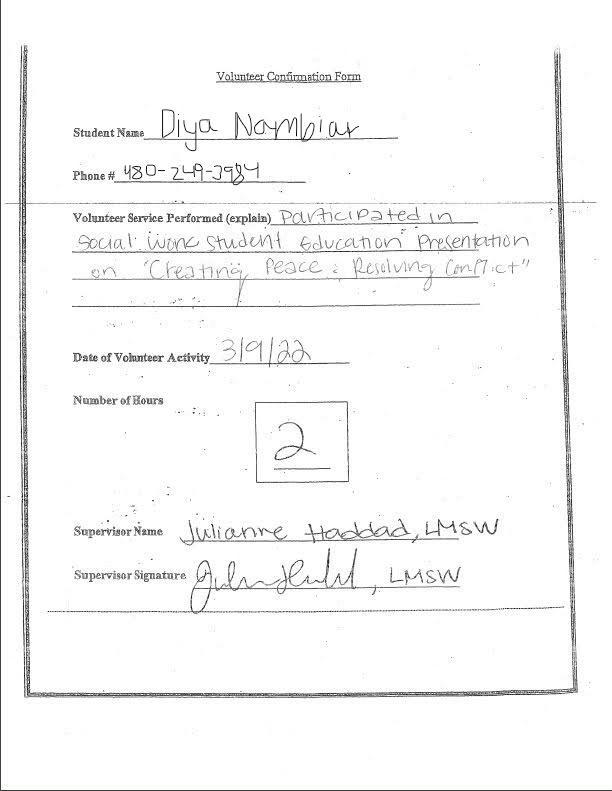 Volunteer Confirmation Form
Student Name Diya Nambiar
Phone # 480-249-3984
Volunteer Service Performed (explain) participated in
social work student Education Presentation
on "Creating Peace & Resolving Conflict"
Date of Volunteer Activity 3/9/22
Number of Hours
2
Supervisor Name Julianne Haddad, LMSW
Supervisor Signature , LMSW